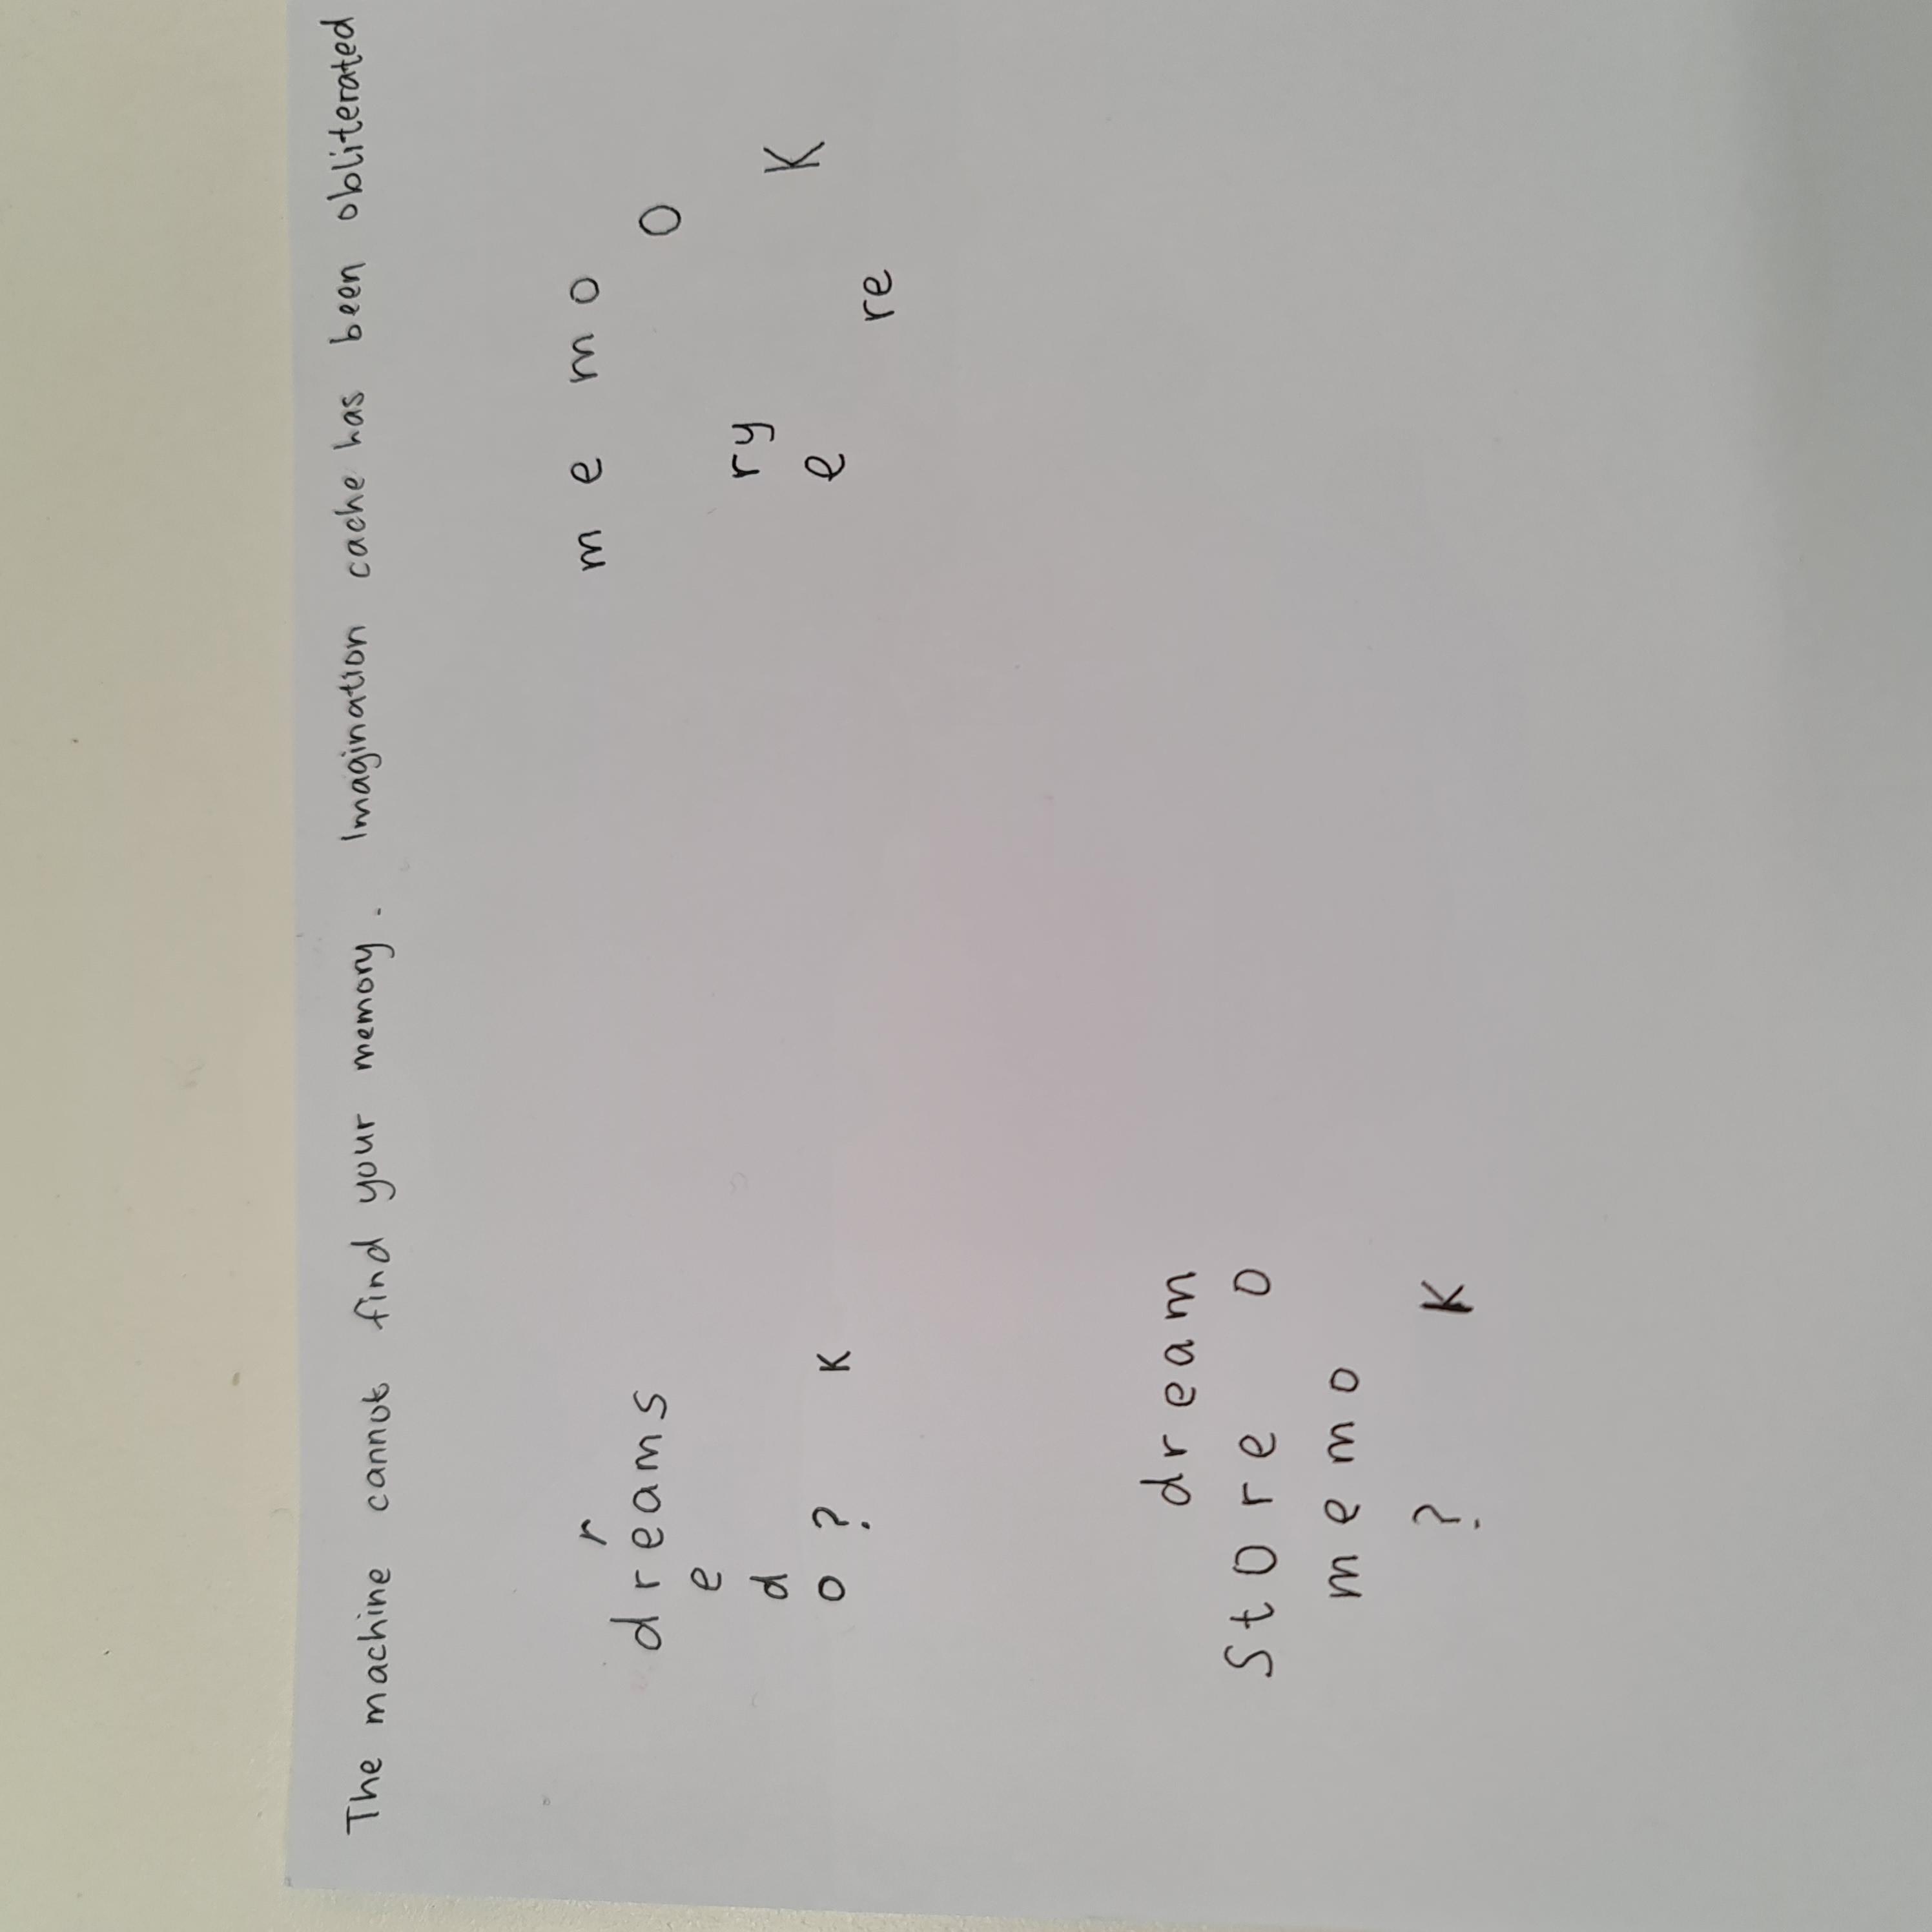 The machine cannot find your memory. Imagination cache has been obliterated
r
dreams
e
d
o ? K
m e mo
o
ry
K
e
re
dream
Store o
memo
? K